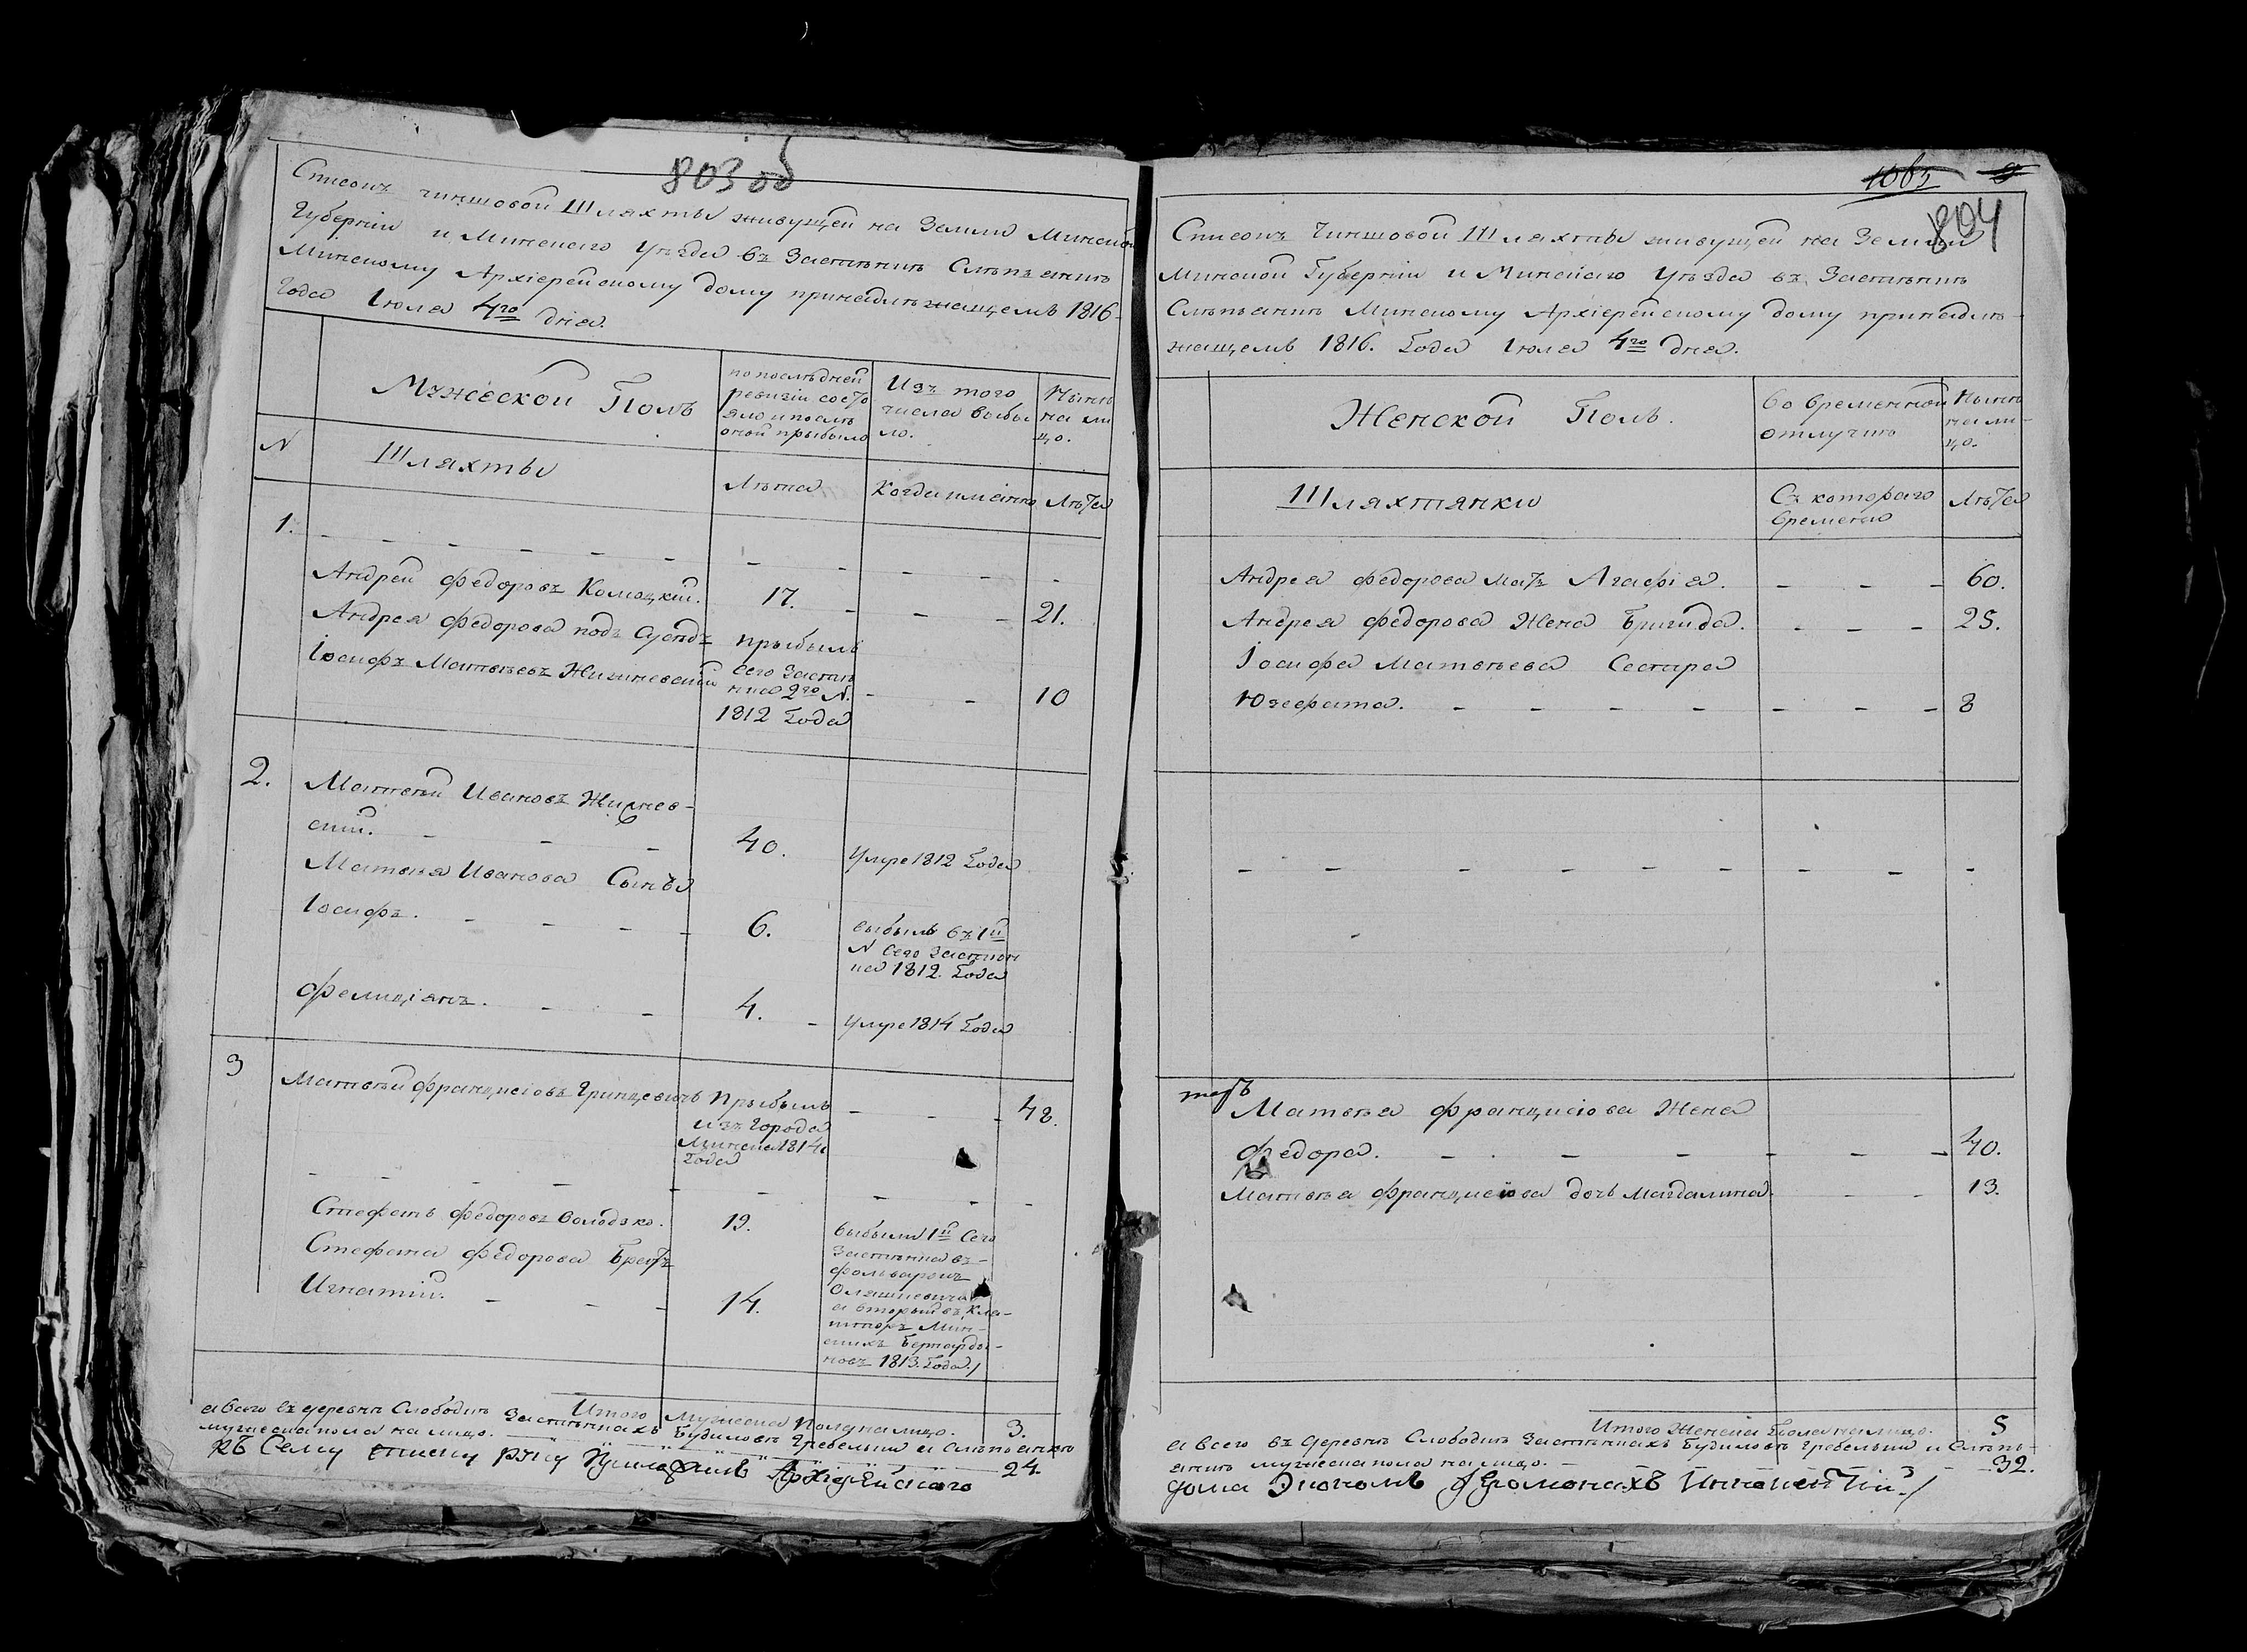 803 об
Списокъ чиншовой Шляхты живущей на Земли Минской
Губерніи и Минскаго Уѣзда въ Застѣнкѣ Слѣпянкѣ
Минскому Архіерейскому дому принадлѣжащемъ 1816
Года Іюля 4го дня.
Мужеской Полъ
по послѣдней
ревизіи состо
яло и послѣ
оной прибыло
Изъ того
числа выбы
ло.
Нынѣ
на ли
цо.
N
Шляхты
Лѣта
Когда имянно
Лѣта
1.
Андрей Федоровъ Комоцкій. 17. 21.
Андрея Федорова подъ Сусѣдъ прибылъ
Іосифъ Матвѣевъ Жигиневскій Сего Застѣн
ника 2го N. 10
1812 Года
2. Матвей Ивановъ Жигнев-
скій. 40. Умре 1812 Года
Матвея Иванова Сынъя
Іосифъ. 6. выбылъ въ 1й
N Сего Застѣн
ка 1812. Года
Фелиціянъ. 4. Умре 1814 Года
3 Матвей Францисковъ Гринцевичъ Прибылъ 48.
изъ города
Минска 1814
Года
Стефанъ Федоровъ Володзко. 19. выбыли 1й Сего
Застѣнка въ
Стефана Федорова Братъ фольваркъ
Игнатій. 14. Оляшкевича
а вторый въ Кля-
шторъ Мин-
скихъ Бернарды-
новъ 1813. Года
Итого Мужеска Пола на лицо. 3.
а всего въ деревнѣ Слободкѣ Застѣнкахъ Будиловкѣ Гребельки и Слѣпянкѣ
мужеска пола на лицо. 24.
къ Сему списку руку приложилъ Архіерейскаго
804
Списокъ Чиншовой Шляхты живущей на Земли
Минской Губерніи и Минскаго Уѣзда въ Застѣнкѣ
Слѣпянкѣ Минскому Архіерейскому дому принадлѣ-
жащемъ 1816. Года Іюля 4го дня.
Женской Полъ.
во временной
отлучкѣ
Нынѣ
на ли-
цо.
Шляхтянки
Съ котораго
времени
Лѣта
Андрея Федорова мать Агафія. 60.
Андрея Федорова Жена Бригида. 25.
Іосифа Матвѣева Сестра
Юзефата. 8
Матвѣя Францискова Жена
Федора. 40.
Матвѣя Францискова дочь Магдалина. 13.
Итого Женска Пола на лицо. 5
а всего въ деревнѣ Слободкѣ Застѣнкахъ Будиловкѣ Гребельки и Слѣпь-
янкѣ мужеска пола на лицо. 32.
дома Экономъ Іеромонахъ Иннокентій